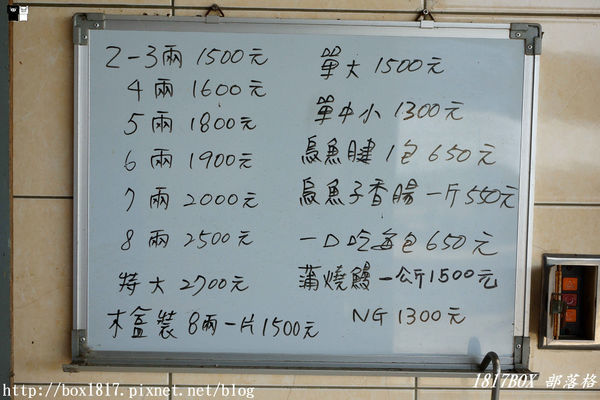 2-3兩 1500元
4兩 1600元
5兩 1800元
6兩 1900元
7兩 2000元
8兩 2500元
特大 2700元
木盒裝 8兩一片1500元
單大 1500元
單中小 1300元
烏魚腱 1包 650元
烏魚子香腸 一斤550元
一口吃每包650元
蒲燒鰻 一公斤1500元
NG 1300元
http://box1817.pixnet.net/blog
1817BOX 部落格